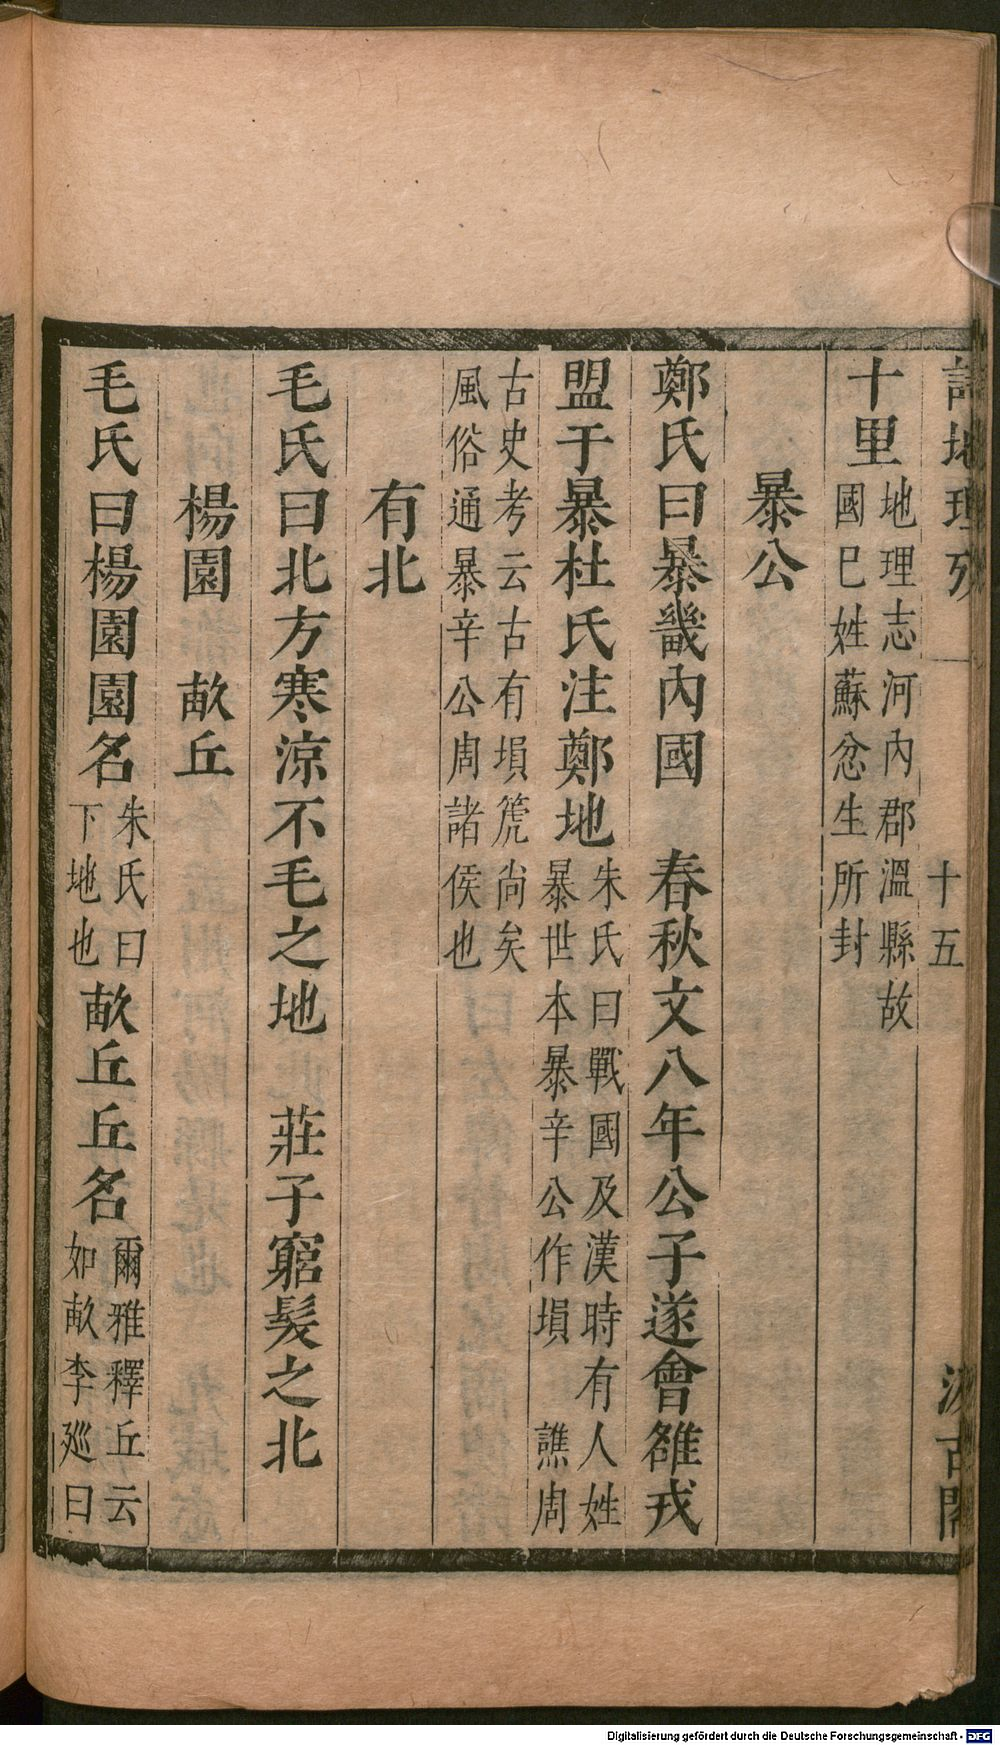 詩地理攷 十五 汲古閣
十里 地理志河內郡溫縣故國巳姓蘇忿生所封
暴公
鄭氏曰暴畿內國 春秋文八年公子遂會雒戎
盟于暴杜氏注鄭地 朱氏曰戰國及漢時有人姓暴世本暴辛公作塤 譙周
古史考云古有塤箎尚矣風俗通暴辛公周諸侯也
有北
毛氏曰北方寒涼不毛之地 莊子窮髮之北
楊園 畝丘
毛氏曰楊園園名 朱氏曰下地也 畝丘丘名 爾雅釋丘云如畝李廵曰
Digitalisierung gefördert durch die Deutsche Forschungsgemeinschaft - DFG